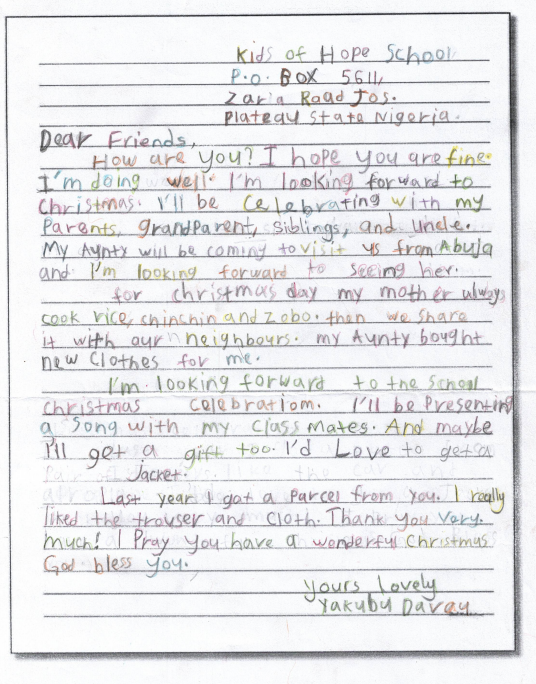 Kids of Hope School
P.o. Box 5611,
Zaria Road Jos.
Plateau State Nigeria.
Dear Friends,
How are you? I hope you are fine.
I'm doing well. I'm looking forward to
Christmas. I'll be Celebrating with my
Parents, grandParent, siblings, and uncle.
My Aunty will be coming to visit us from Abuja
and I'm looking forward to seeing her.
for christmas day my mother always
cook rice, chinchin and zobo. then we share
it with our neighbours. my Aunty bought
new Clothes for me.
I'm looking forward to the School
christmas celebration. I'll be Presenting
a Song with my Class Mates. And maybe
I'll get a gift too. I'd Love to get a
Jacket.
Last year I got a Parcel from you. I really
liked the trouser and Cloth. Thank you Very.
much! I Pray you have a wonderful Christmas
God bless you.
yours lovely
Yakubu